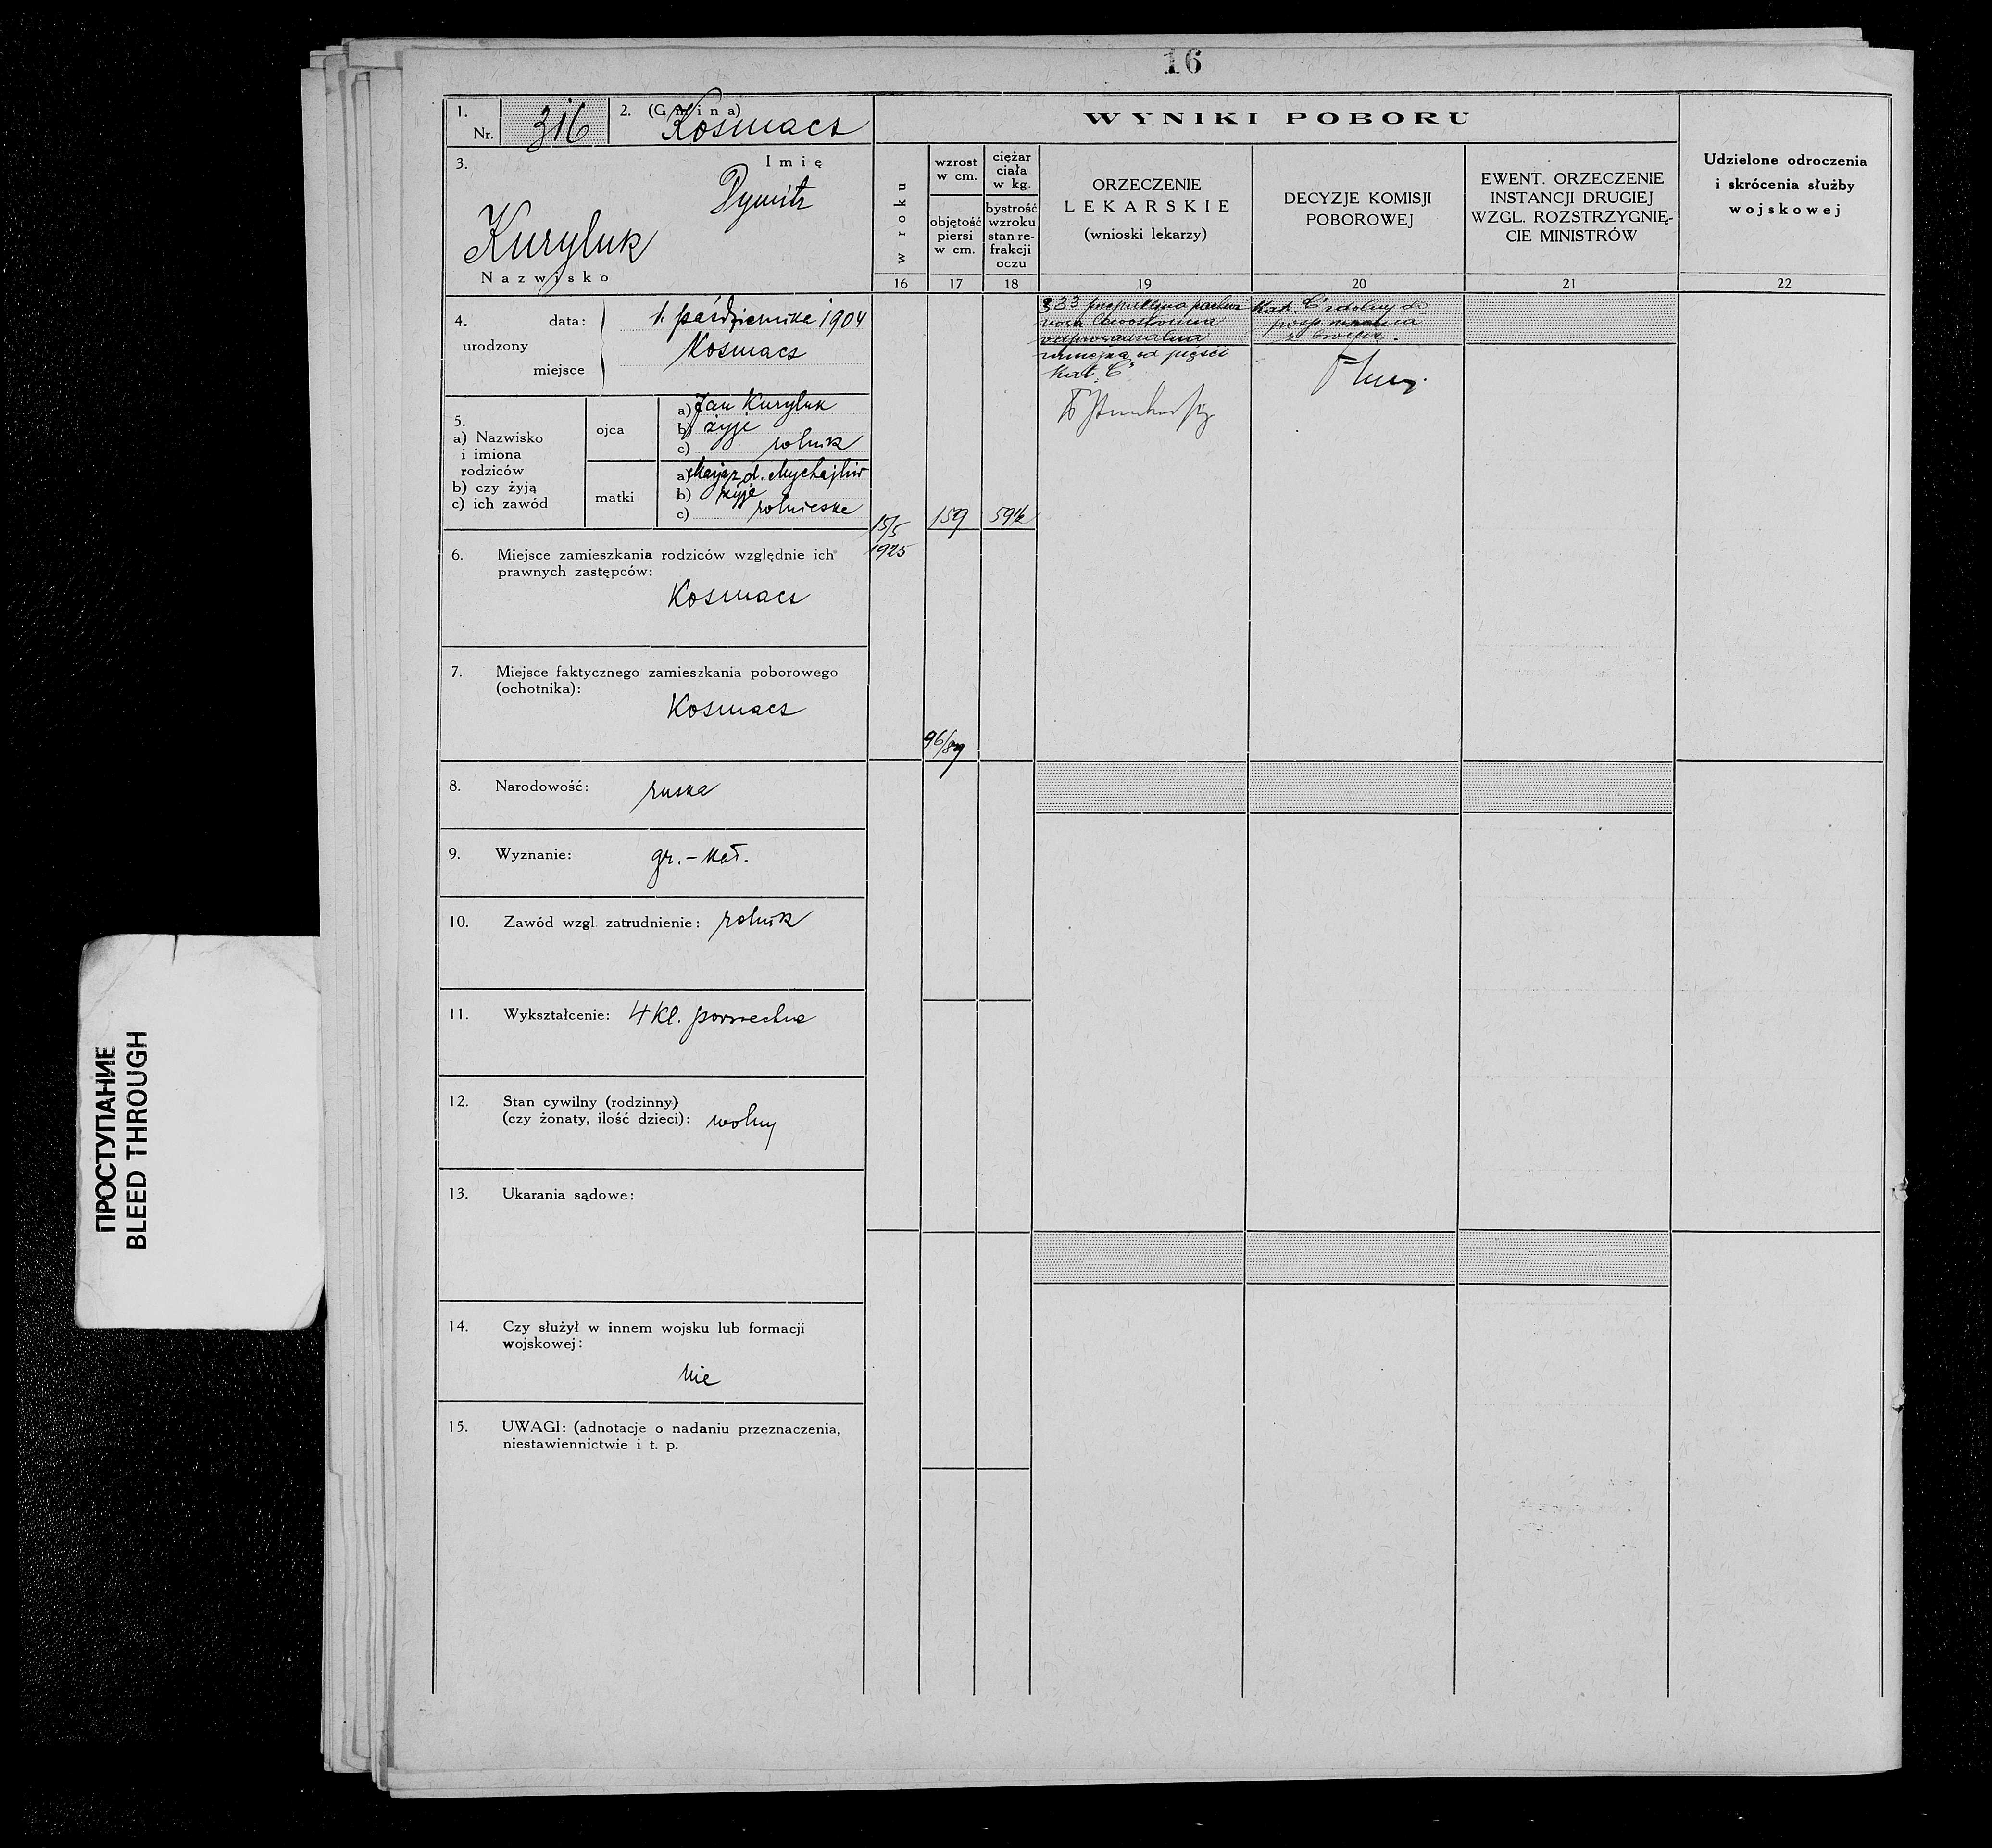 16
1.
Nr. 316
2. (Gmina) Kosmacz
3.
Imię
Dymitr
Kuryluk
Nazwisko
4. urodzony
data: 1. października 1904
miejsce Kosmacz
5.
a) Nazwisko
i imiona
rodziców
b) czy żyją
c) ich zawód
ojca
a) Jan Kuryluk
b) żyje
c) rolnik
matki
a) Marja z d. Mychajluk
b) żyje
c) rolniczka
6. Miejsce zamieszkania rodziców względnie ich
prawnych zastępców:
Kosmacz
7. Miejsce faktycznego zamieszkania poborowego
(ochotnika):
Kosmacz
8. Narodowość: ruska
9. Wyznanie: gr.-kat.
10. Zawód wzgl. zatrudnienie: rolnik
11. Wykształcenie: 4 kl. powszechne
12. Stan cywilny (rodzinny)
(czy żonaty, ilość dzieci): wolny
13. Ukarania sądowe:
14. Czy służył w innem wojsku lub formacji
wojskowej:
nie
15. UWAGI: (adnotacje o nadaniu przeznaczenia,
niestawiennictwie i t. p.
WYNIKI POBORU
w roku
16
wzrost
w cm.
objętość
piersi
w cm.
17
ciężar
ciała
w kg.
bystrość
wzroku
stan re-
frakcji
oczu
18
ORZECZENIE
LEKARSKIE
(wnioski lekarzy)
19
DECYZJE KOMISJI
POBOROWEJ
20
EWENT. ORZECZENIE
INSTANCJI DRUGIEJ
WZGL. ROZSTRZYGNIĘ-
CIE MINISTRÓW
21
Udzielone odroczenia
i skrócenia służby
wojskowej
22
15/5
1925
159
59½
96/89
333 przepuklina pachwi
nowa lewostronna
odprowadzalna
mniejsza od pięści
Kat. C"
Kat. C" zdolny do
posp. ruszenia
z bronią.
ПРОСТУПАНИЕ
BLEED THROUGH